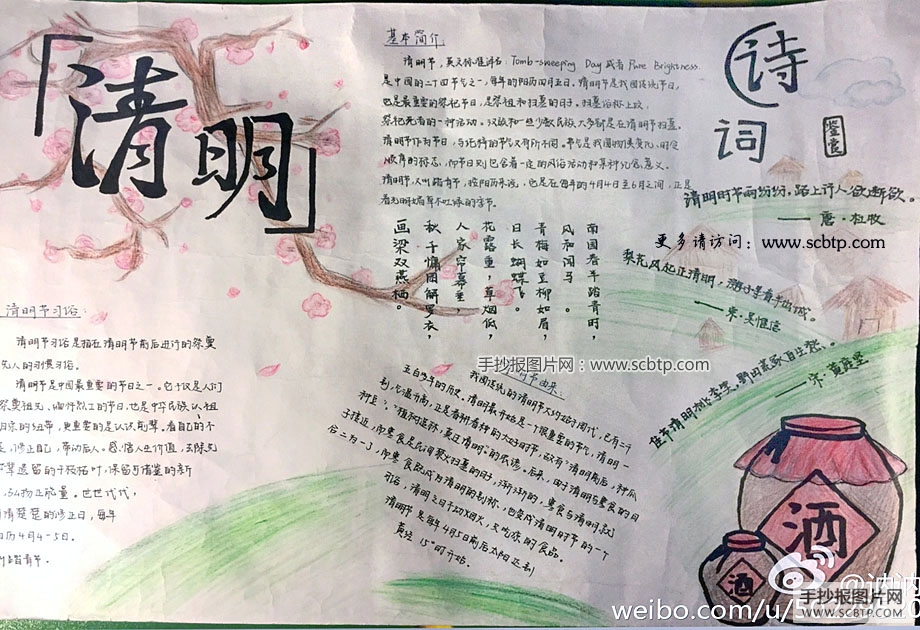 「清明」
基本简介
清明节,英文标准译名 Tomb-sweeping Day 或者 Pure Brightness
是中国的二十四节气之一,每年的阳历四月五日。清明节是我国传统节日,
也是最重要的祭祀节日,是祭祖和扫墓的日子。扫墓俗称上坟,
祭祀死者的一种活动。汉族和一些少数民族大多都是在清明节扫墓。
清明节作为节日,与纯粹的节气又有所不同。节气是我国物候变化、时令
顺序的标志,而节日则包含着一定的风俗活动和某种纪念意义。
清明节,又叫踏青节,按阳历来说,它是在每年的4月4日至6日之间,正是
春光明媚草木吐绿的季节
南园春半踏青时,
风和闻马
青梅如豆柳如眉,
日长蝴蝶飞。
花露重,草烟低,
人家帘幕垂,
秋千慵困解罗衣,
画梁双燕栖。
诗词
鉴赏
清明时节雨纷纷,路上行人欲断欲。
——唐·杜牧
更多请访问:www.scbtp.com
梨花风起正清明,游子寻春半出城。
——宋·吴惟信
佳节清明桃李笑,野田荒冢自生愁。
——宋·黄庭坚
清明节习俗:
清明节习俗是指在清明节前后进行的祭奠
先人的习惯习俗。
清明是中国最重要的节日之一。它不仅是人们
祭奠祖先、缅怀烈士的节日,也是中华民族认祖
归宗的纽带,更重要的是认识前辈。看自己的不
足,修正自己,带动后人。感悟人生价值,去除死
草遗留的干枝枯叶,保留与诸蓄的新
弘扬正能量。世世代代,
清清楚楚的修正日,每年
历4月4-5日。
叫踏青节。
手抄报图片网:www.scbtp.com
节由来:
我国传统的清明节大约始于周代,已有二千
五百多年的历史。清明最开始是一个很重要的节气,清明一
到,气温升高,正是春耕春种的大好时节,故有"清明前后,种瓜
种豆"。"植树造林,莫过清明"的农谚。后来,由于清明与寒食的日
子接近,而寒食是民间禁火扫墓的日子,渐渐的,寒食与清明就
合二为一了,而寒食既成为清明的别称,也变成清明时节的一个
习俗,清明之日不动烟火,只吃凉的食品。
清明节是每年4月5日前后太阳正到
黄经15°时开始.
酒
酒
weibo.com/u/
手抄报图片网
WWW.SCBTP.COM